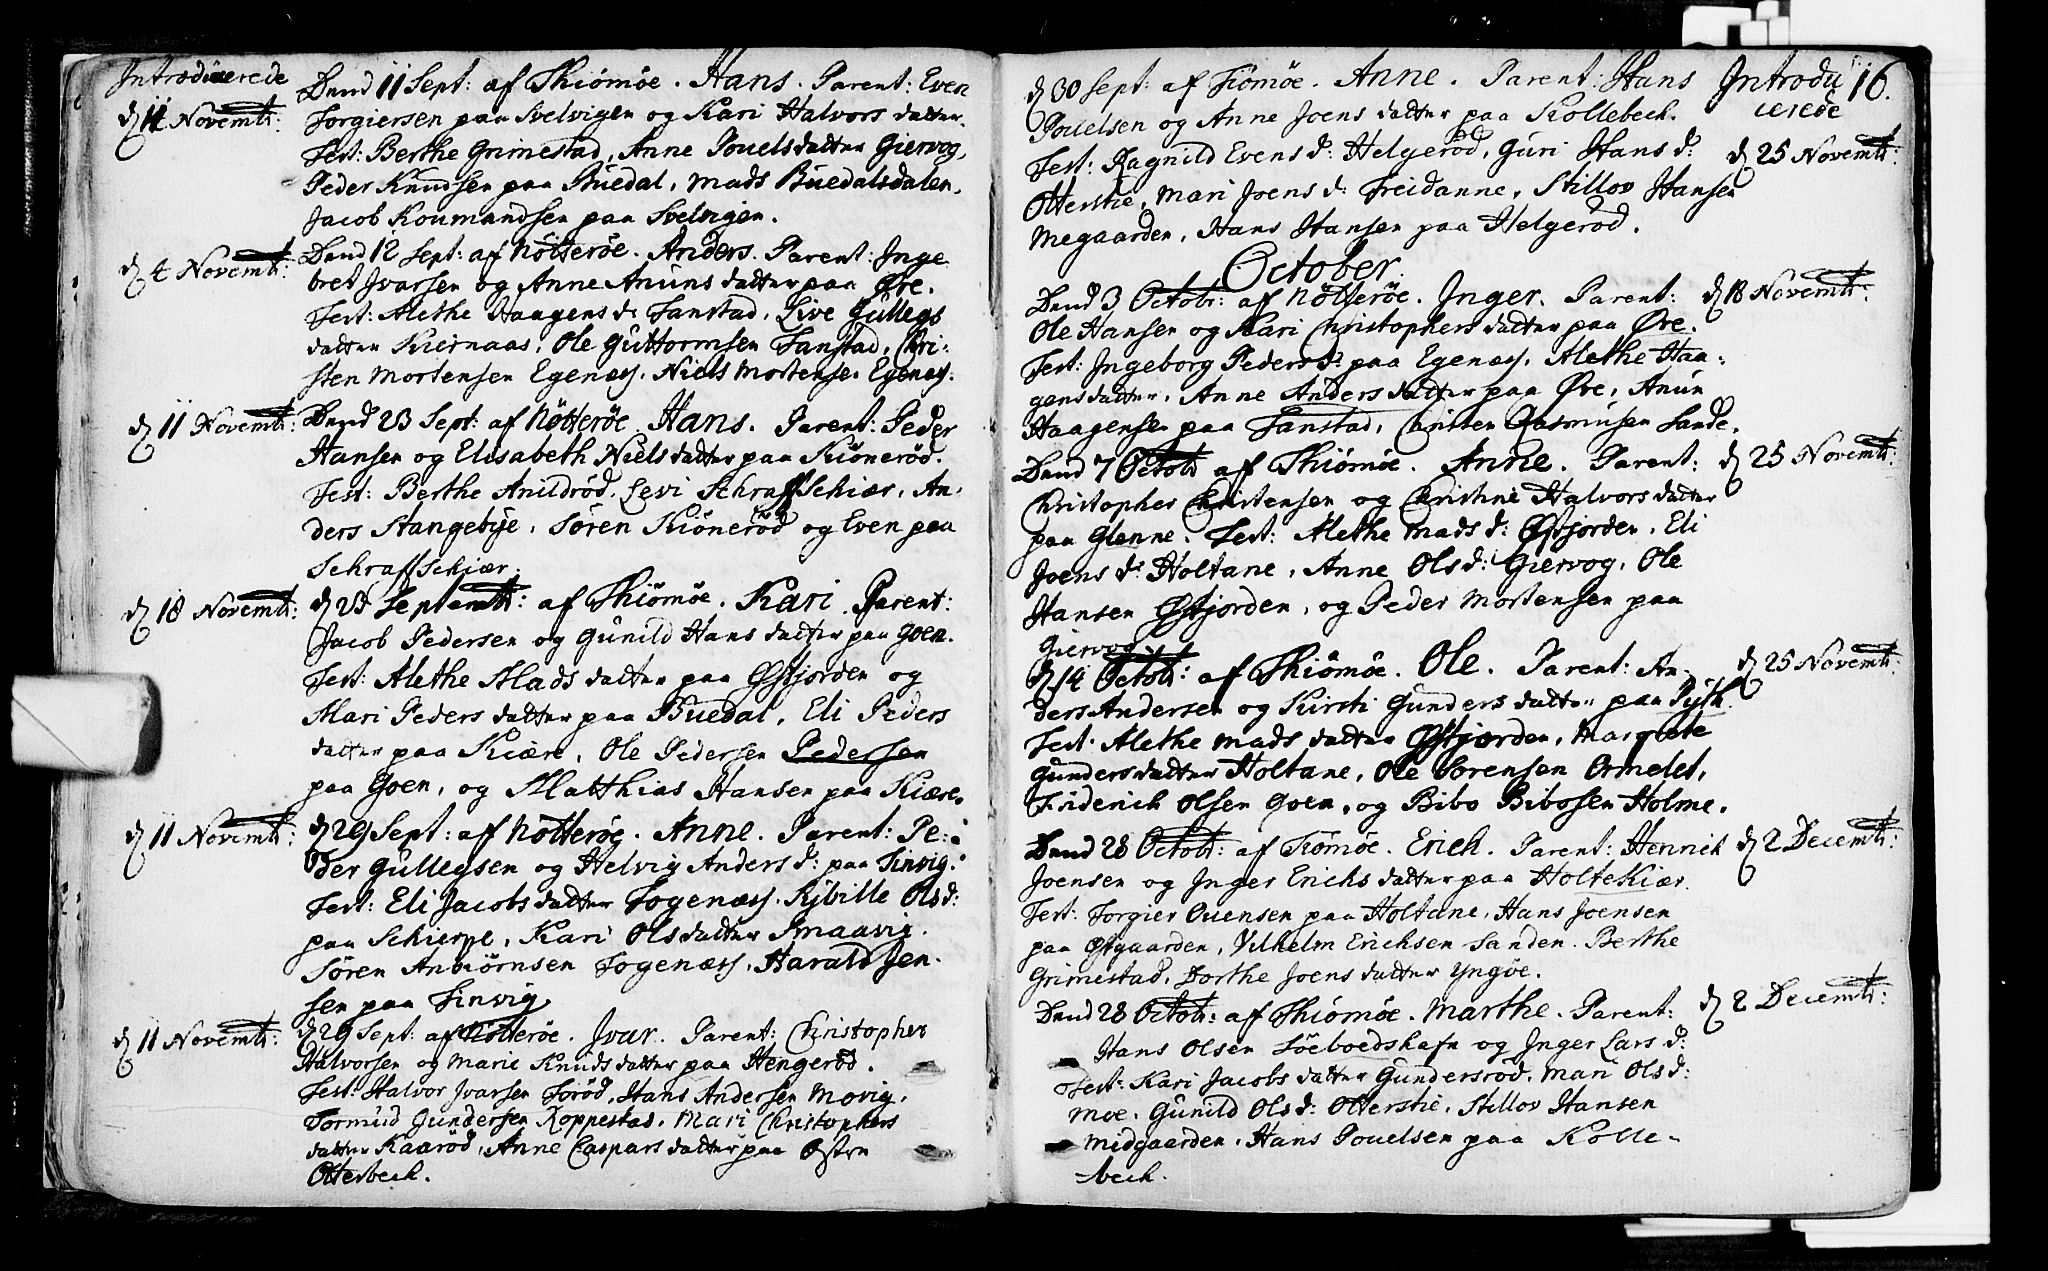 Introducerede
Dend 11 Sept: af Thiömöe. Hans. Parent: Even
d. 14 Novembr:
Torgiersen paa Svelvigen og Kari Halvors datter.
Test: Berthe Grimestad, Anne Pouels datter Giervog,
Peder Knudsen paa Buedal, Mads Buedalsdalen,
Jacob Koumandsen paa Svelvigen.
d. 4 Novembr:
Dend 12 Sept: af Nötteröe. Anders. Parent: Inge
bret Ivarsen og Anne Anuns datter paa Øre.
Test: Alethe Haagens d: Tanstad, Live Gullegs
datter Kiernaas, Ole Guttormsen Tanstad, Chri:
sten Mortensen Egenæs, Niels Mortensen Egenæs.
d. 11 Novembr:
Dend 23 Sept: af Nötteröe. Hans. Parent: Peder
Hansen og Elisabeth Niels datter paa Kiöneröd.
Test: Berthe Anildröd, Levi Schraffschiær, An-
ders Stangebye, Sören Kiöneröd og Even paa
Schraffschiær.
d. 18 Novembr:
d. 23 Septembr: af Thiömöe. Kari. Parent:
Jacob Pedersen og Gunild Hans datter paa Goen.
Test: Alethe Mads datter paa Østjorden og
Mari Peders datter paa Buedal, Eli Peders
datter paa Kiære, Ole Pedersen Pedersen
paa Goen, og Matthias Hansen paa Kiære.
d. 11 Novembr:
d. 29 Sept: af Nötteröe. Anne. Parent: Pe:
der Gullegsen og Helvig Anders d: paa Tinvig.
Test: Eli Jacobs datter Togenæs, Rybille Ols d:
paa Schierpe, Kari Ols datter Smaavig.
Sören Anbiörnsen Togenæs, Harald Jen-
sen paa Tinvig
d. 11 Novembr:
d. 29 Sept: af Nötteröe. Ivar. Parent: Christopher
Halvorsen og Marie Knuds datter paa Hengeröd.
Test: Halvor Ivarsen Toröd, Hans Andersen Movig,
Tormud Gundersen Roppestad, Mari Christophers
datter Kaaröd, Anne Caspars datter paa Østre
Otterbech.
d. 30 Sept: af Tiömöe. Anne. Parent: Hans
Introdu
cerede
16.
Pouelsen og Anne Joens datter paa Kollebech.
d. 25 Novembr:
Test: Ragnild Evens d: Helgeröd, Guri Hans d:
Otterstie, Mari Joens d: Treidanne, Stillov Hansen
Megaarden, Hans Hansen paa Helgeröd.
October.
Dend 3 Octobr: af Nötteröe. Inger. Parent:
d. 18 Novembr:
Ole Hansen og Kari Christophers datter paa Øre.
Test: Ingeborg Peders d: paa Egenæs, Alethe Haa:
gens datter, Anne Anders datter paa Øre, Anun
Haagensen paa Tanstad, Christen Rasmusen Sande.
Dend 7 Octobr af Thiömöe. Anne. Parent:
d. 25 Novembr:
Christopher Christensen og Christine Halvors datter
paa Glenne. Test: Alethe Mads d: Østjorden, Eli
Joens d: Holtane, Anne Ols d: Giervog, Ole
Hansen Østjorden, og Peder Mortensen paa
Giervog.
d. 14 Octobr: af Thiömöe. Ole. Parent: An-
d. 25 Novembr:
ders Andersen og Kirsti Gunders datter paa
Test: Alethe Mads datter Østjorden, Margrete
Gunders datter Holtane, Ole Sorensen Ormelet,
Friderich Olsen Goen, og Bibo Bibosen Holme.
Dend 28 Octobr: af Tiömöe. Erich. Parent: Henrich
d. 2 Decembr:
Joensen og Inger Erichs datter paa Holtekiær.
Test: Torgier Ouensen paa Holtane, Hans Joensen
paa Østgaarden, Vilhelm Erichsen Sanden. Berthe
Grimestad, Dorthe Joens datter Yngöe.
Dend 28 Octobr: af Thiömöe. Marthe. Parent:
d. 2 Decembr:
Hans Olsen Söeboedshafn og Inger Lars d:
Test: Kari Jacobs datter Gundersröd, Mari Ols d:
Moe, Gunild Ols d: Otterstie, Stillov Hansen
Midgaarden, Hans Pouelsen paa Kolle-
bech.